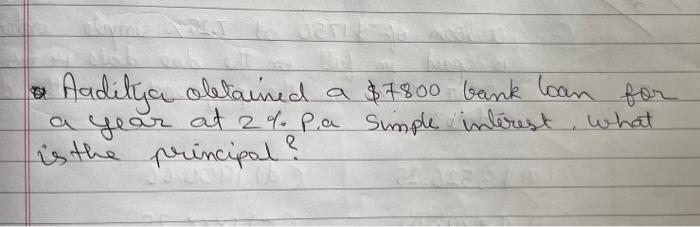 Aaditya obtained a $7800 bank loan for
a year at 2% P.a Simple interest, what
is the principal?